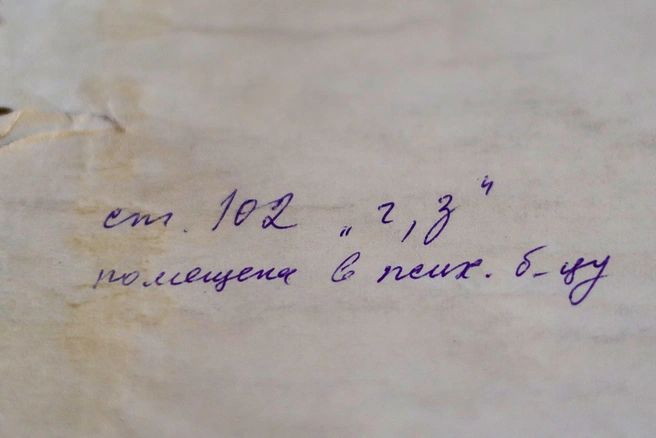 ст. 102 „г, з"
помещена в псих. б-цу